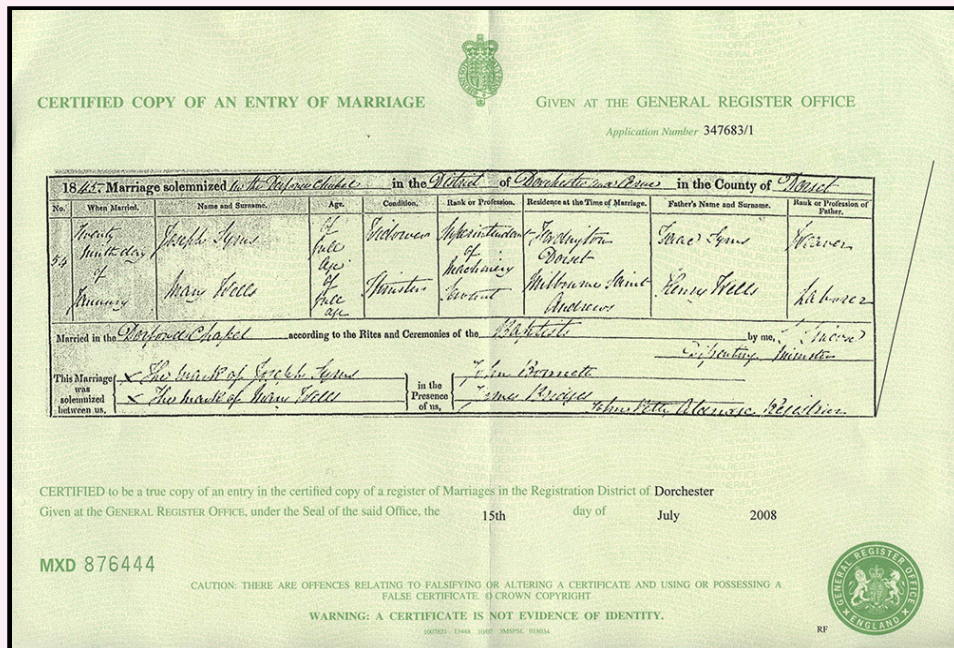 CERTIFIED COPY OF AN ENTRY OF MARRIAGE
GIVEN AT THE GENERAL REGISTER OFFICE
Application Number 347683/1
1845. Marriage solemnized in the Dorford Chapel in the District of Dorchester in the County of Dorset
No. When Married. Name and Surname. Age. Condition. Rank or Profession. Residence at the Time of Marriage. Father's Name and Surname. Rank or Profession of Father.
54 Twenty ninth day of January
Joseph Syms of full age Widower Superintendent of Machinery Dorset Isaac Syms Weaver
Mary Wells of full age Spinster Servant Milbourne Saint Andrews Henry Wells Laborer
Married in the Dorford Chapel according to the Rites and Ceremonies of the Baptists by me,
Minister
This Marriage was solemnized between us,
X The mark of Joseph Syms
X The mark of Mary Wells
in the Presence of us,
John
James Bridges
John Registrar
CERTIFIED to be a true copy of an entry in the certified copy of a register of Marriages in the Registration District of Dorchester
Given at the GENERAL REGISTER OFFICE, under the Seal of the said Office, the 15th day of July 2008
MXD 876444
CAUTION: THERE ARE OFFENCES RELATING TO FALSIFYING OR ALTERING A CERTIFICATE AND USING OR POSSESSING A
FALSE CERTIFICATE. © CROWN COPYRIGHT
WARNING: A CERTIFICATE IS NOT EVIDENCE OF IDENTITY.
GENERAL REGISTER OFFICE
ENGLAND
RF